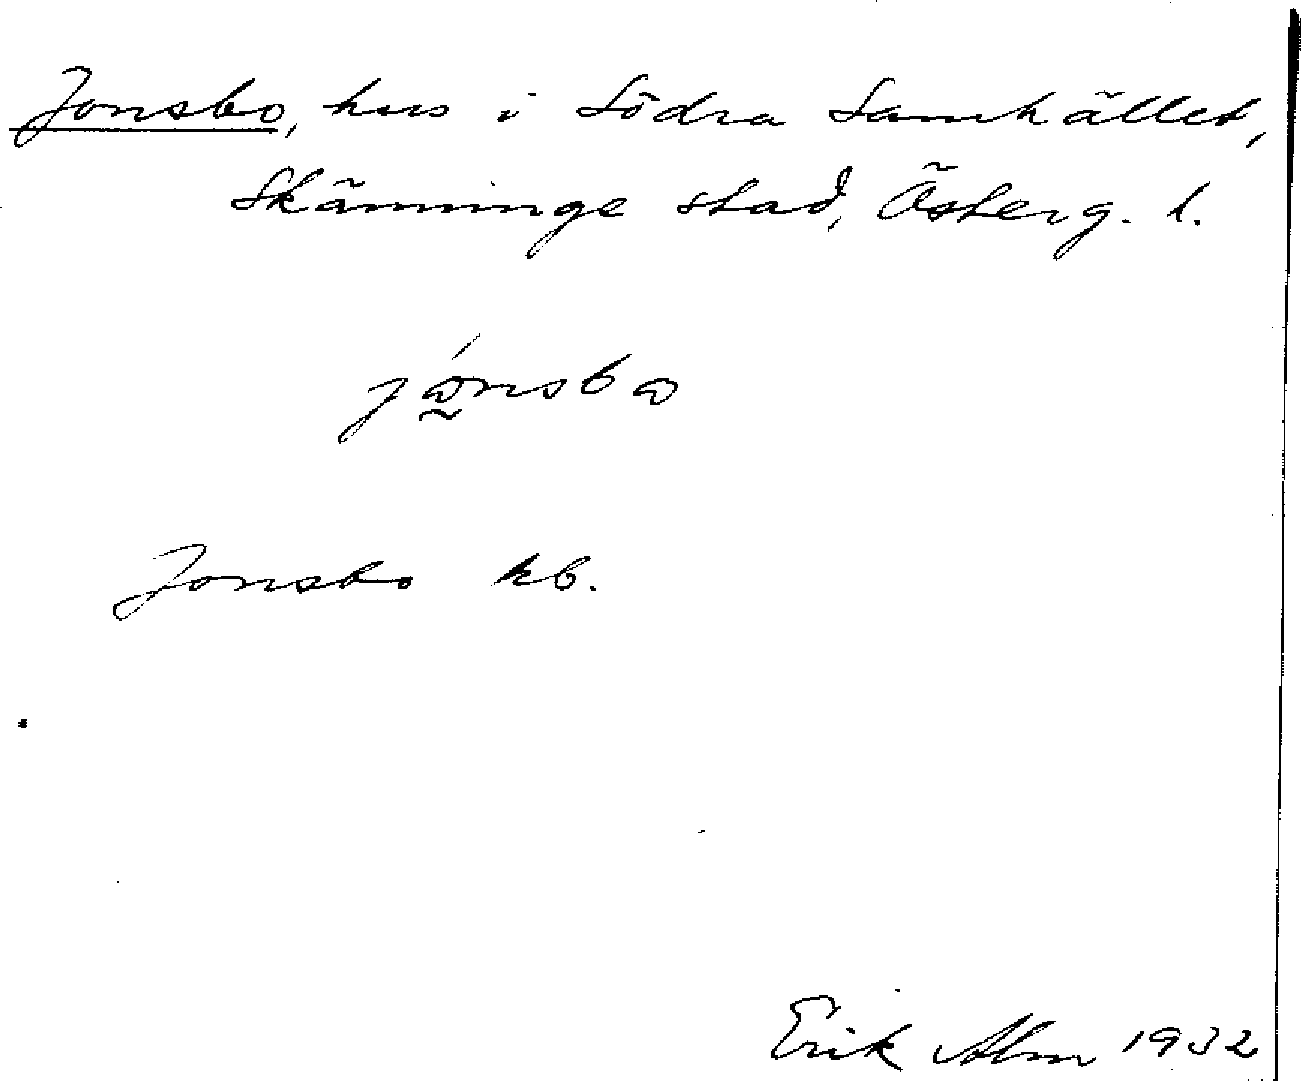 Jonsbo, hus i Södra Samhället,
Skänninge stad, Österg. l.
jɷ̰́nsbɷ
Jonsbo kb.
Erik Alm 1932